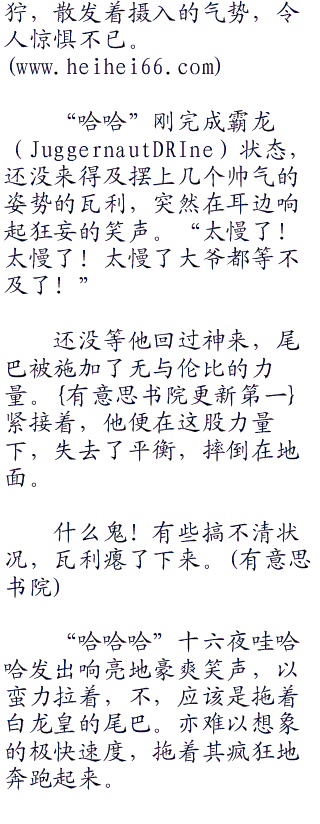 狞，散发着摄入的气势，令
人惊惧不已。
(www.heihei66.com)
“哈哈”刚完成霸龙
（JuggernautDRIne）状态，
还没来得及摆上几个帅气的
姿势的瓦利，突然在耳边响
起狂妄的笑声。“太慢了！
太慢了！太慢了大爷都等不
及了！”
还没等他回过神来，尾
巴被施加了无与伦比的力
量。{有意思书院更新第一}
紧接着，他便在这股力量
下，失去了平衡，摔倒在地
面。
什么鬼！有些搞不清状
况，瓦利瘪了下来。(有意思
书院)
“哈哈哈”十六夜哇哈
哈发出响亮地豪爽笑声，以
蛮力拉着，不，应该是拖着
白龙皇的尾巴。亦难以想象
的极快速度，拖着其疯狂地
奔跑起来。